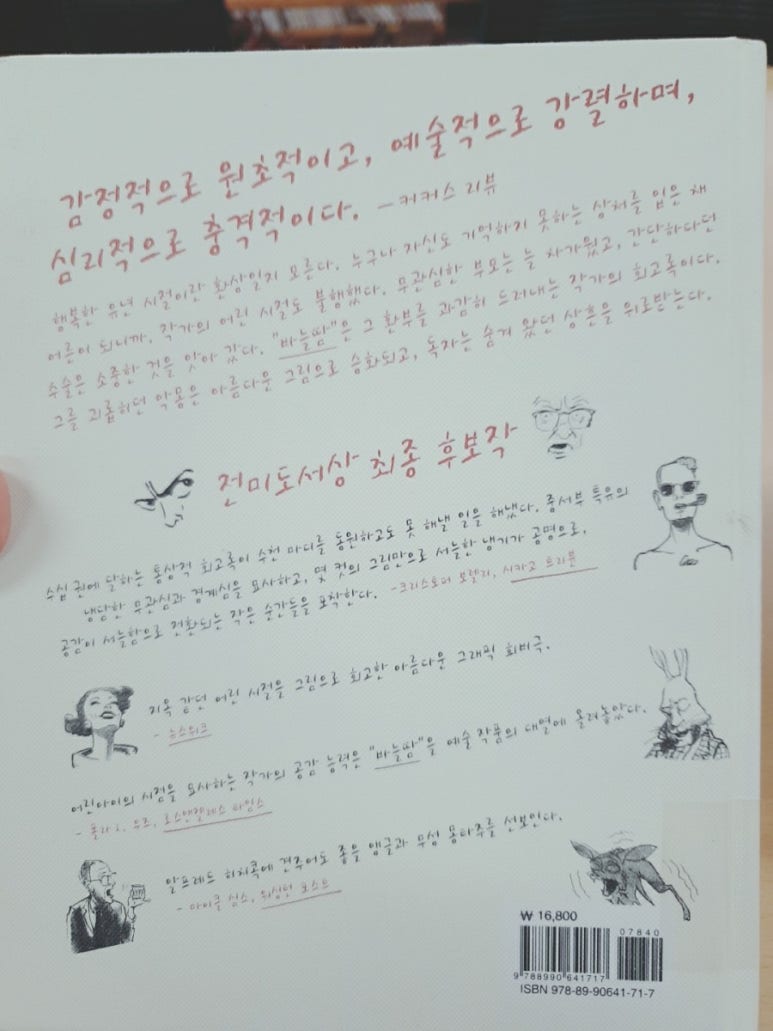 감정적으로 원초적이고, 예술적으로 강렬하며,
심리적으로 충격적이다. -커커스 리뷰
행복한 유년 시절이란 환상일지 모른다. 누구나 자신도 기억하지 못하는 상처를 입은 채
어른이 되니까. 작가의 어린 시절도 불행했다. 무관심한 부모는 늘 차가웠고, 간단하다던
수술은 소중한 것을 앗아 갔다. "바늘땀"은 그 환부를 과감히 드러내는 작가의 회고록이다.
그를 괴롭히던 악몽은 아름다운 그림으로 승화되고, 독자는 숨겨 왔던 상흔을 위로받는다.
전미도서상 최종 후보작
수십 권에 달하는 통상적 회고록이 수천 마디를 동원하고도 못 해낼 일을 해냈다. 중서부 특유의
냉담한 무관심과 경계심을 묘사하고, 몇 컷의 그림만으로 서늘한 냉기가 공명으로,
공감이 서늘함으로 전환되는 작은 순간들을 포착한다. -크리스토퍼 보렐리, 시카고 트리뷴
지옥 같던 어린 시절을 그림으로 회고한 아름다운 그래픽 희비극.
- 뉴스위크
어린아이의 시점을 묘사하는 작가의 공감 능력은 "바늘땀"을 예술 작품의 대열에 올려놓았다.
- 폴라 L. 우즈, 로스앤젤레스 타임스
알프레드 히치콕에 견주어도 좋을 앵글과 무성 몽타주를 선보인다.
- 마이클 심스, 워싱턴 포스트
₩ 16,800
07840
9 788990 641717
ISBN 978-89-90641-71-7